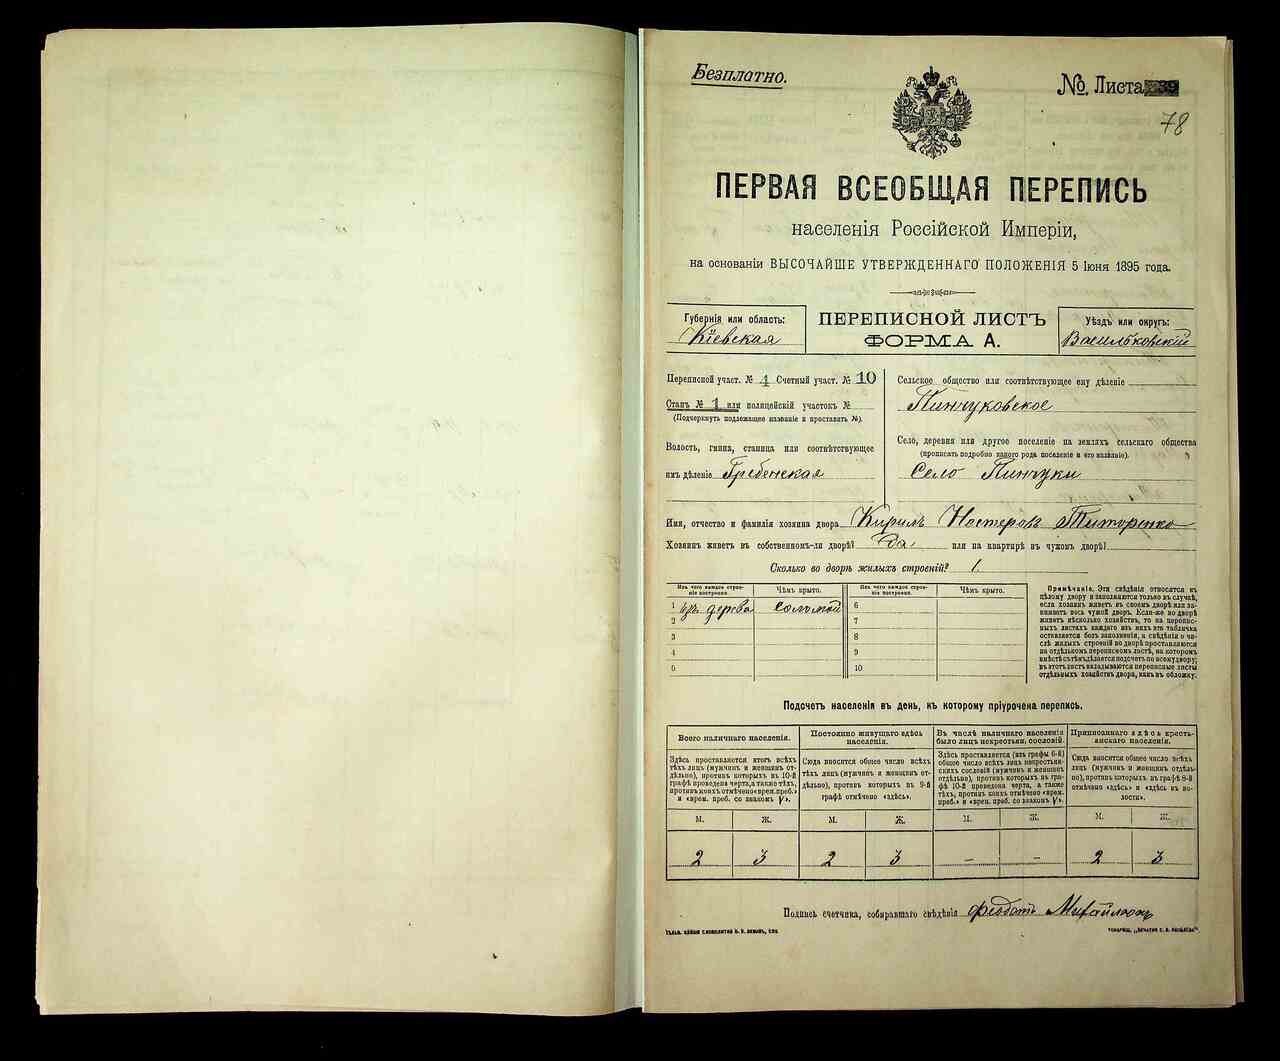 Безплатно.
№ Листа 39
78
ПЕРВАЯ ВСЕОБЩАЯ ПЕРЕПИСЬ
населенія Россійской Имперіи,
на основаніи ВЫСОЧАЙШЕ УТВЕРЖДЕННАГО ПОЛОЖЕНІЯ 5 Іюня 1895 года.
Губернія или область:
Кіевская
ПЕРЕПИСНОЙ ЛИСТЪ
ФОРМА А.
Уѣздъ или округъ:
Васильковскій
Переписной участ. № 1 Счетный участ. № 10
Станъ № 1 или полицейскій участокъ №
(Подчеркнуть подлежащее названіе и проставить №).
Волость, гмина, станица или соотвѣтствующее
имъ дѣленіе Гребенская
Сельское общество или соотвѣтствующее ему дѣленіе
Пинчуковское
Село, деревня или другое поселеніе на земляхъ сельскаго общества
(прописать подробно какого рода поселеніе и его названіе).
Село Пинчуки
Имя, отчество и фамилія хозяина двора Кирилъ Нестеровъ Титоренко
Хозяинъ живетъ въ собственномъ-ли дворѣ? Да или на квартирѣ въ чужомъ дворѣ?
Сколько во дворѣ жилыхъ строеній? 1.
Изъ чего каждое строеніе построено.
Чѣмъ крыто.
Изъ чего каждое строеніе построено.
Чѣмъ крыто.
1 изъ дерева соломой
2
3
4
5
6
7
8
9
10
Примѣчаніе. Эти свѣдѣнія относятся къ
цѣлому двору и заполняются только въ случаѣ,
если хозяинъ живетъ въ своемъ дворѣ или занимаетъ
весь чужой дворъ. Если-же во дворѣ
живетъ нѣсколько хозяйствъ, то на переписныхъ
листахъ каждаго изъ нихъ эта табличка
оставляется безъ заполненія, а свѣдѣнія о числѣ
жилыхъ строеній во дворѣ проставляются
на отдѣльномъ переписномъ листѣ, на которомъ
вмѣстѣ съ тѣмъ дѣлается подсчетъ по всему двору;
въ этотъ листъ вкладываются переписные листы
отдѣльныхъ хозяйствъ двора, какъ въ обложку.
Подсчетъ населенія въ день, къ которому пріурочена перепись.
Всего наличнаго населенія.
Постоянно живущаго здѣсь
населенія.
Въ числѣ наличнаго населенія
было лицъ некрестьян. сословій.
Приписаннаго здѣсь крестьянскаго
населенія.
Здѣсь проставляется итогъ всѣхъ
тѣхъ лицъ (мужчинъ и женщинъ отдѣльно),
противъ которыхъ въ 10-й
графѣ проведена черта, а также тѣхъ,
противъ коихъ отмѣчено «врем. преб.»
и «врем. преб. со знакомъ V».
Сюда вносится общее число всѣхъ
тѣхъ лицъ (мужчинъ и женщинъ отдѣльно),
противъ которыхъ въ 9-й
графѣ отмѣчено «здѣсь».
Здѣсь проставляется (изъ графы 6-й)
общее число всѣхъ лицъ некрестьянскихъ
сословій (мужчинъ и женщинъ
отдѣльно), противъ которыхъ въ графѣ
10-й проведена черта, а также
тѣхъ, противъ коихъ отмѣчено «врем.
преб.» и «врем. преб. со знакомъ V».
Сюда вносится общее число всѣхъ
лицъ (мужчинъ и женщинъ отдѣльно),
противъ которыхъ въ графѣ 8-й
отмѣчено «здѣсь» и «здѣсь въ волости».
М. Ж. М. Ж. М. Ж. М. Ж.
2 3 2 3 – – 2 3
Подпись счетчика, собиравшаго свѣдѣнія Феодотъ Михайлюкъ